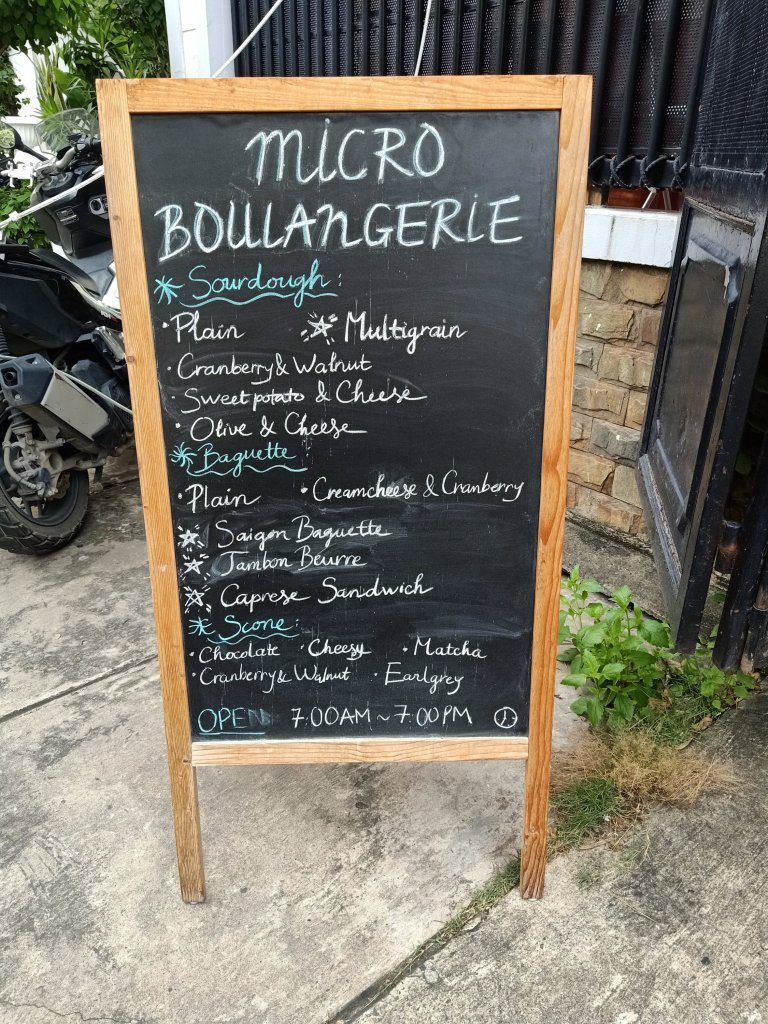 MICRO
BOULANGERIE
Sourdough:
• Plain Multigrain
• Cranberry & Walnut
• Sweet potato & Cheese
• Olive & Cheese
Baguette
• Plain • Creamcheese & Cranberry
Saigon Baguette
Jambon Beurre
Caprese Sandwich
Scone:
• Chocolate • Cheesy • Matcha
• Cranberry & Walnut • Earlgrey
OPEN 7:00AM ~ 7:00PM